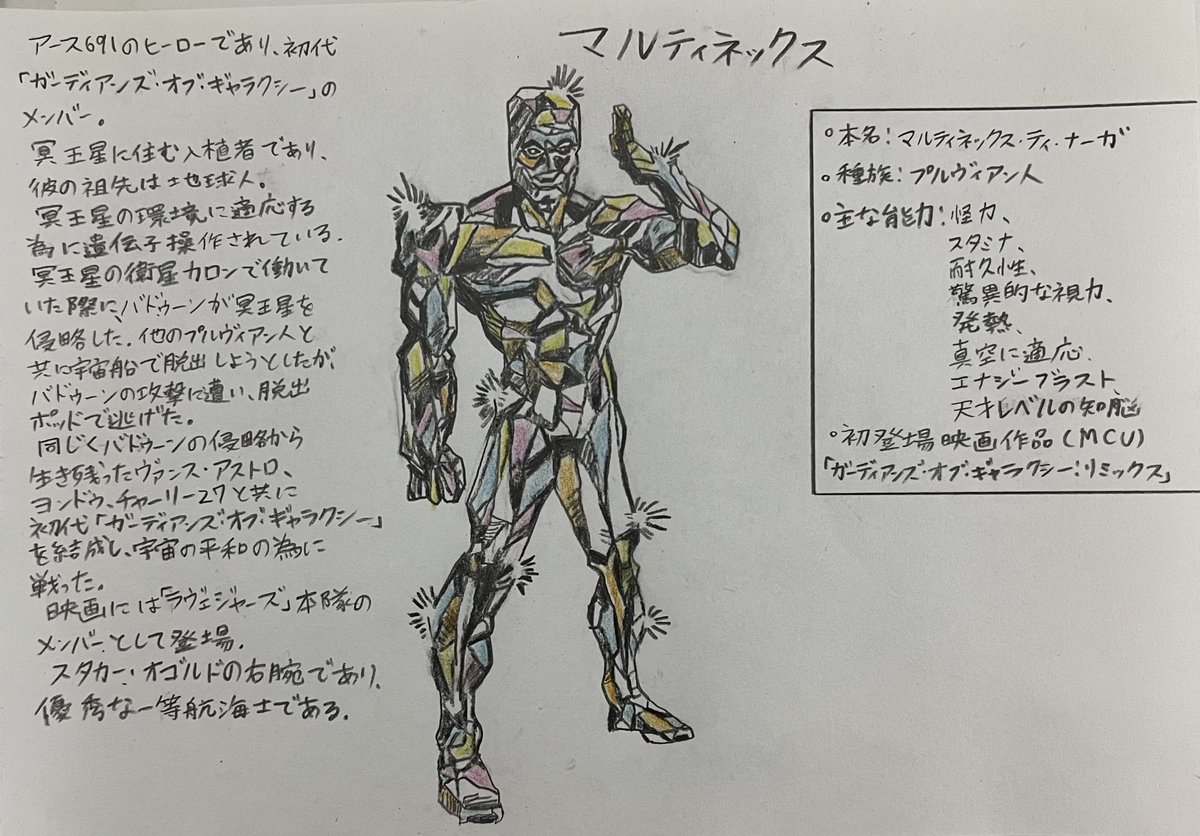 マルティネックス
アース691のヒーローであり、初代
「ガーディアンズ・オブ・ギャラクシー」の
メンバー。
冥王星に住む入植者であり、
彼の祖先は地球人。
冥王星の環境に適応する
為に遺伝子操作されている。
冥王星の衛星カロンで働いて
いた際に、バドゥーンが冥王星を
侵略した。他のプルヴィアン人と
共に宇宙船で脱出しようとしたが、
バドゥーンの攻撃に遭い、脱出
ポッドで逃げた。
同じくバドゥーンの侵略から
生き残ったヴァンス・アストロ、
ヨンドゥ、チャーリー27と共に
初代「ガーディアンズ・オブ・ギャラクシー」
を結成し、宇宙の平和の為に
戦った。
映画には「ラヴェジャーズ」本隊の
メンバーとして登場。
スタカー・オゴルドの右腕であり、
優秀な一等航海士である。
○本名:マルティネックス・ティ・ナーガ
○種族:プルヴィアン人
○主な能力:怪力、
スタミナ、
耐久性、
驚異的な視力、
発熱、
真空に適応、
エナジーブラスト、
天才レベルの知能
○初登場映画作品(MCU)
「ガーディアンズ・オブ・ギャラクシー:リミックス」